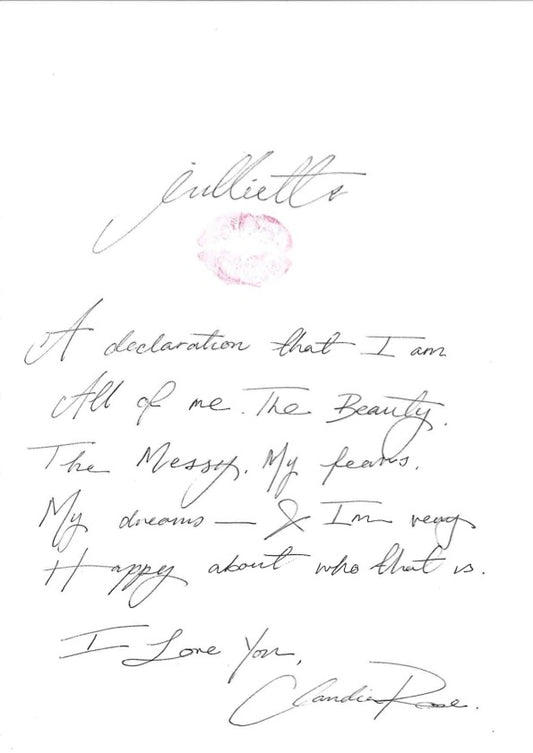 jullietts
A declaration that I am
All of me. The Beauty.
The Messy. My fears.
My dreams — & Im very
Happy about who that is.
I Love You,
Claudia Rose.